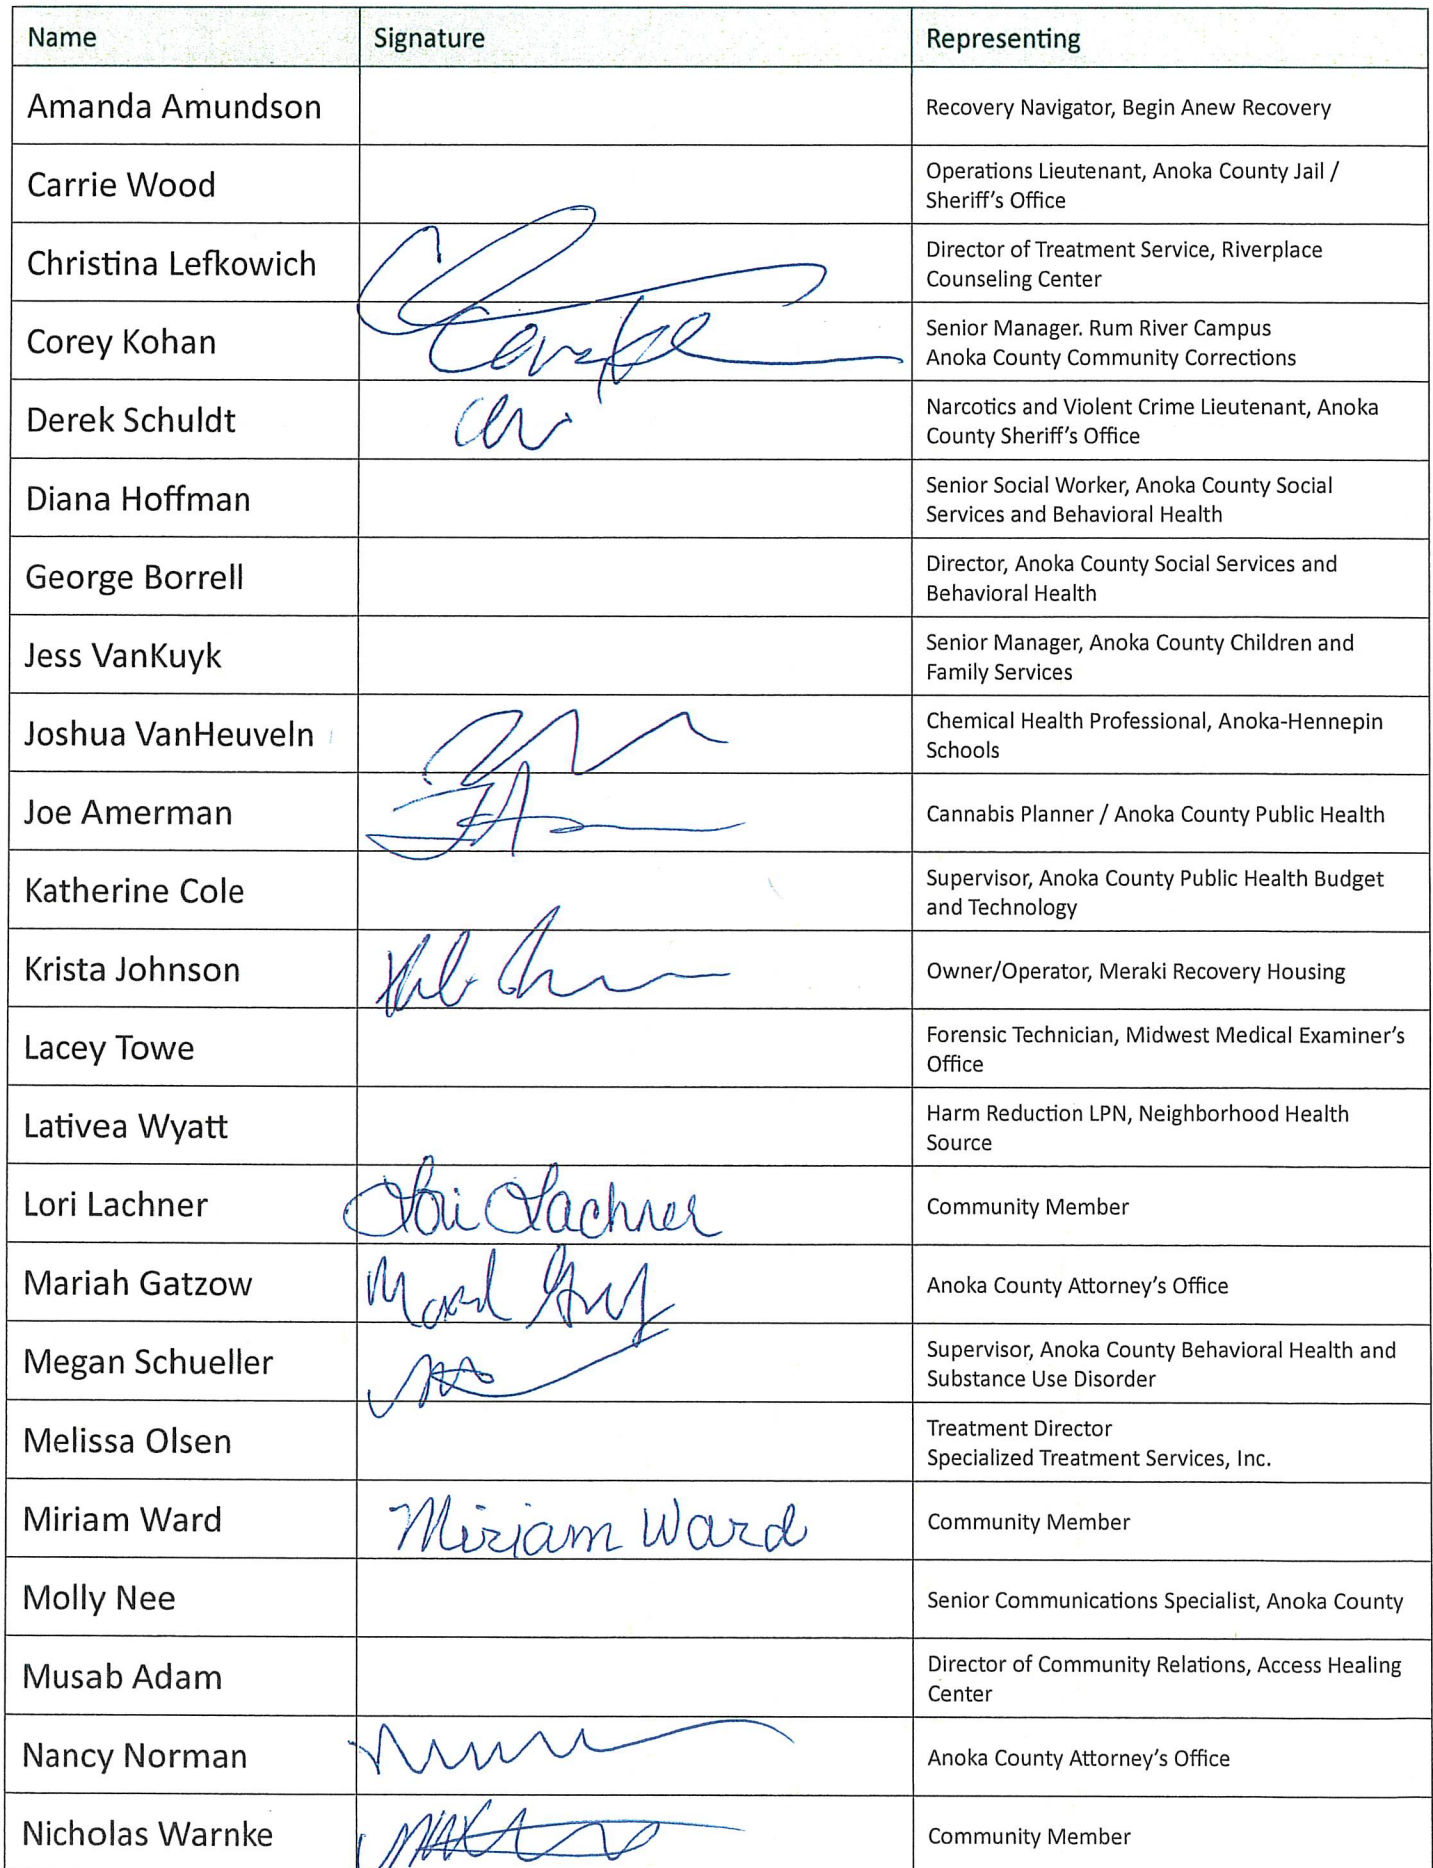 Name Signature Representing
Amanda Amundson Recovery Navigator, Begin Anew Recovery
Carrie Wood Operations Lieutenant, Anoka County Jail /
Sheriff's Office
Christina Lefkowich Director of Treatment Service, Riverplace
Counseling Center
Corey Kohan Senior Manager. Rum River Campus
Anoka County Community Corrections
Derek Schuldt Narcotics and Violent Crime Lieutenant, Anoka
County Sheriff's Office
Diana Hoffman Senior Social Worker, Anoka County Social
Services and Behavioral Health
George Borrell Director, Anoka County Social Services and
Behavioral Health
Jess VanKuyk Senior Manager, Anoka County Children and
Family Services
Joshua VanHeuveln Chemical Health Professional, Anoka-Hennepin
Schools
Joe Amerman Cannabis Planner / Anoka County Public Health
Katherine Cole Supervisor, Anoka County Public Health Budget
and Technology
Krista Johnson Owner/Operator, Meraki Recovery Housing
Lacey Towe Forensic Technician, Midwest Medical Examiner's
Office
Lativea Wyatt Harm Reduction LPN, Neighborhood Health
Source
Lori Lachner Lori Lachner Community Member
Mariah Gatzow Anoka County Attorney's Office
Megan Schueller Supervisor, Anoka County Behavioral Health and
Substance Use Disorder
Melissa Olsen Treatment Director
Specialized Treatment Services, Inc.
Miriam Ward Miriam Ward Community Member
Molly Nee Senior Communications Specialist, Anoka County
Musab Adam Director of Community Relations, Access Healing
Center
Nancy Norman Anoka County Attorney's Office
Nicholas Warnke Community Member